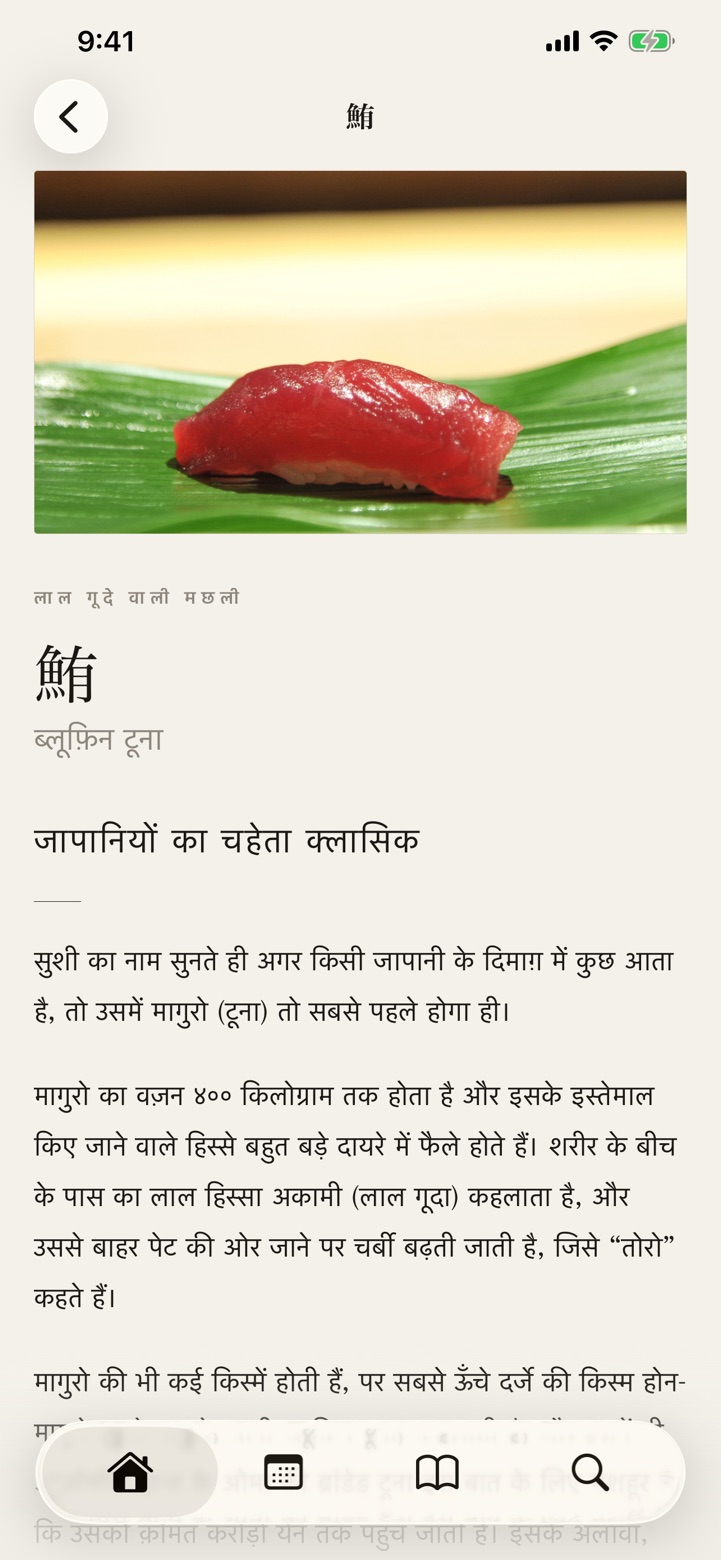 9:41
鮪
लाल गूदे वाली मछली
鮪
ब्लूफ़िन टूना
जापानियों का चहेता क्लासिक
सुशी का नाम सुनते ही अगर किसी जापानी के दिमाग़ में कुछ आता
है, तो उसमें मागुरो (टूना) तो सबसे पहले होगा ही।
मागुरो का वज़न ४०० किलोग्राम तक होता है और इसके इस्तेमाल
किए जाने वाले हिस्से बहुत बड़े दायरे में फैले होते हैं। शरीर के बीच
के पास का लाल हिस्सा अकामी (लाल गूदा) कहलाता है, और
उससे बाहर पेट की ओर जाने पर चर्बी बढ़ती जाती है, जिसे “तोरो”
कहते हैं।
मागुरो की भी कई किस्में होती हैं, पर सबसे ऊँचे दर्जे की किस्म होन-
ब्रांडेड टूना इस बात के लिए मशहूर
कि उसकी क़ीमत करोड़ों येन तक पहुँच जाती है। इसके अलावा,